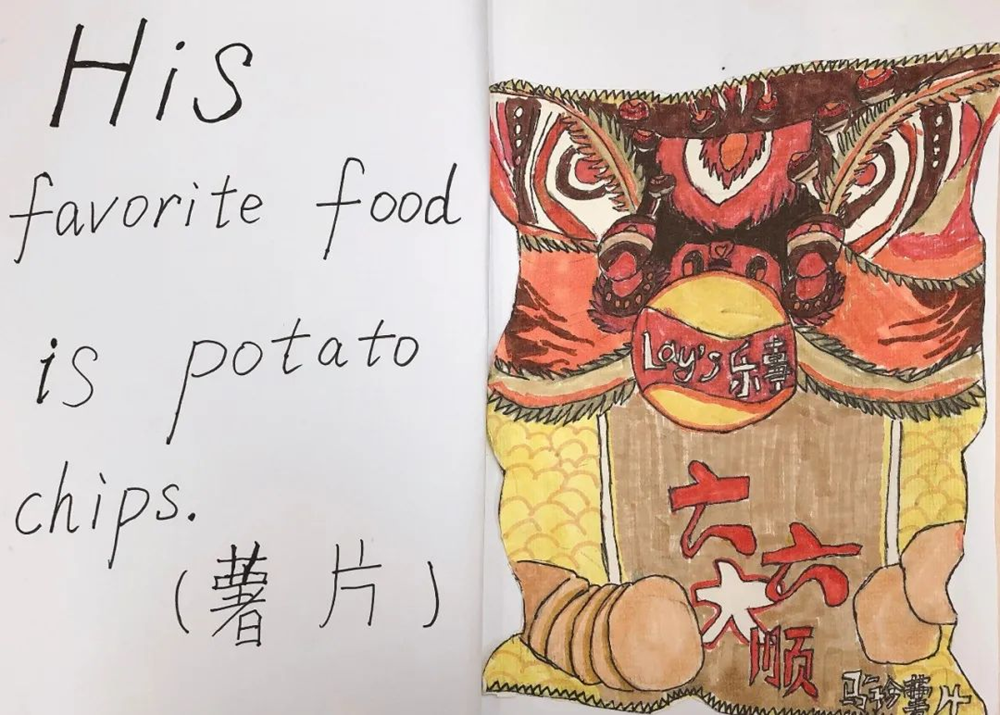 His
favorite food
is potato
chips.
(薯片)
Lay's 乐事
六
六
大
顺
马铃薯片